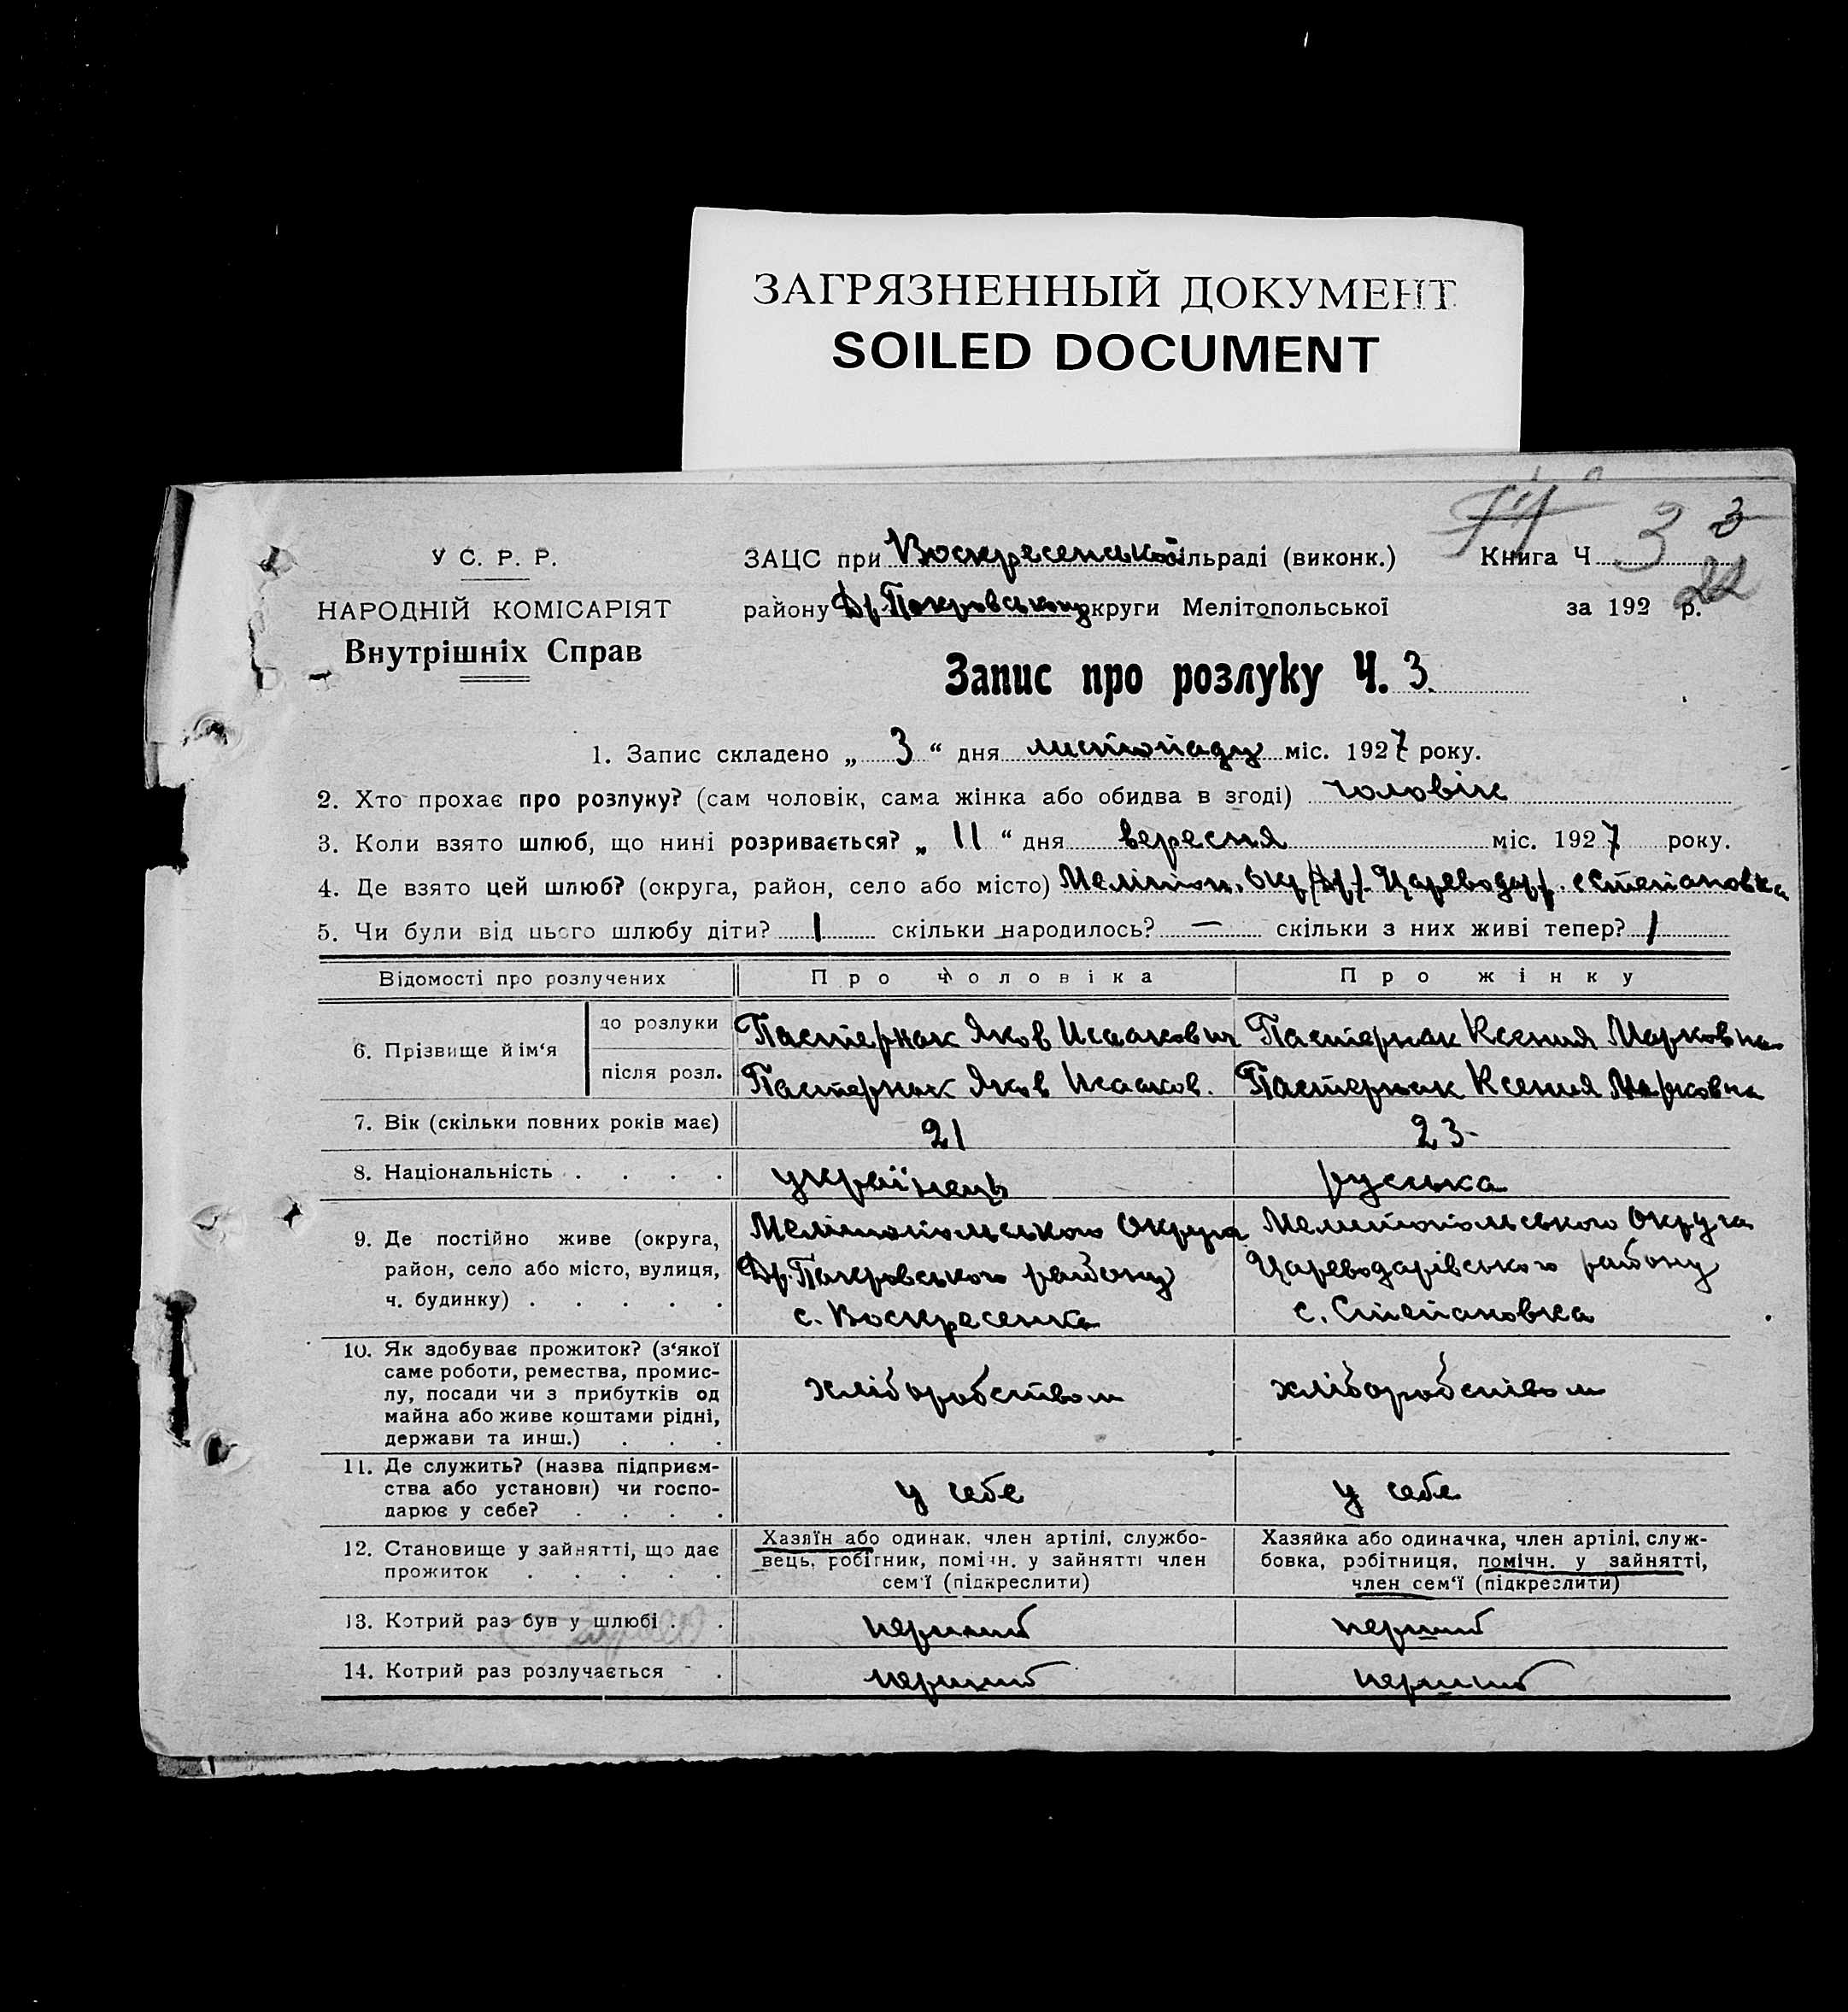 ЗАГРЯЗНЕННЫЙ ДОКУМЕНТ
SOILED DOCUMENT
У С. Р. Р.
НАРОДНІЙ КОМІСАРІЯТ
Внутрішніх Справ
ЗАЦС при Воскресенській сільраді (виконк.)
Книга Ч 3
3
району Др. Покровського округи Мелітопольської
за 192 р.
22
Запис про розлуку Ч. 3.
1. Запис складено „ 3 “ дня листопаду міс. 1927 року.
2. Хто прохає про розлуку? (сам чоловік, сама жінка або обидва в згоді) чоловік
3. Коли взято шлюб, що нині розривається? „ 11 “ дня вересня міс. 1927 року.
4. Де взято цей шлюб? (округа, район, село або місто) Мелітоп. окр. Цареводар. с Степановка
5. Чи були від цього шлюбу діти? 1 скільки народилось? — скільки з них живі тепер? 1
Відомості про розлучених
Про чоловіка
Про жінку
6. Прізвище й ім‘я
до розлуки
Пастернак Яков Исаакович
Пастернак Ксения Марковна
після розл.
Пастернак Яков Исааков.
Пастернак Ксения Марковна
7. Вік (скільки повних років має)
21
23
8. Національність . . . .
українець
руська
9. Де постійно живе (округа,
район, село або місто, вулиця,
ч. будинку) . . . . .
Мелітопольського Округа
Др. Покровського району
с. Воскресенка
Мелитопольського Округа
Цареводарівського району
с. Степановка
10. Як здобуває прожиток? (з‘якої
саме роботи, ремества, промис-
лу, посади чи з прибутків од
майна або живе коштами рідні,
держави та инш.) . . .
хліборобством
хліборобством
11. Де служить? (назва підприєм-
ства або установи) чи госпо-
дарює у себе? . . . .
у себе
у себе
12. Становище у зайнятті, що дає
прожиток . . . . .
Хазяїн або одинак, член артілі, службо-
вець, робітник, помічн. у зайнятті член
сем‘ї (підкреслити)
Хазяйка або одиначка, член артілі, служ-
бовка, робітниця, помічн. у зайнятті,
член сем‘ї (підкреслити)
13. Котрий раз був у шлюбі . .
перший
перший
14. Котрий раз розлучається - .
перший
перший